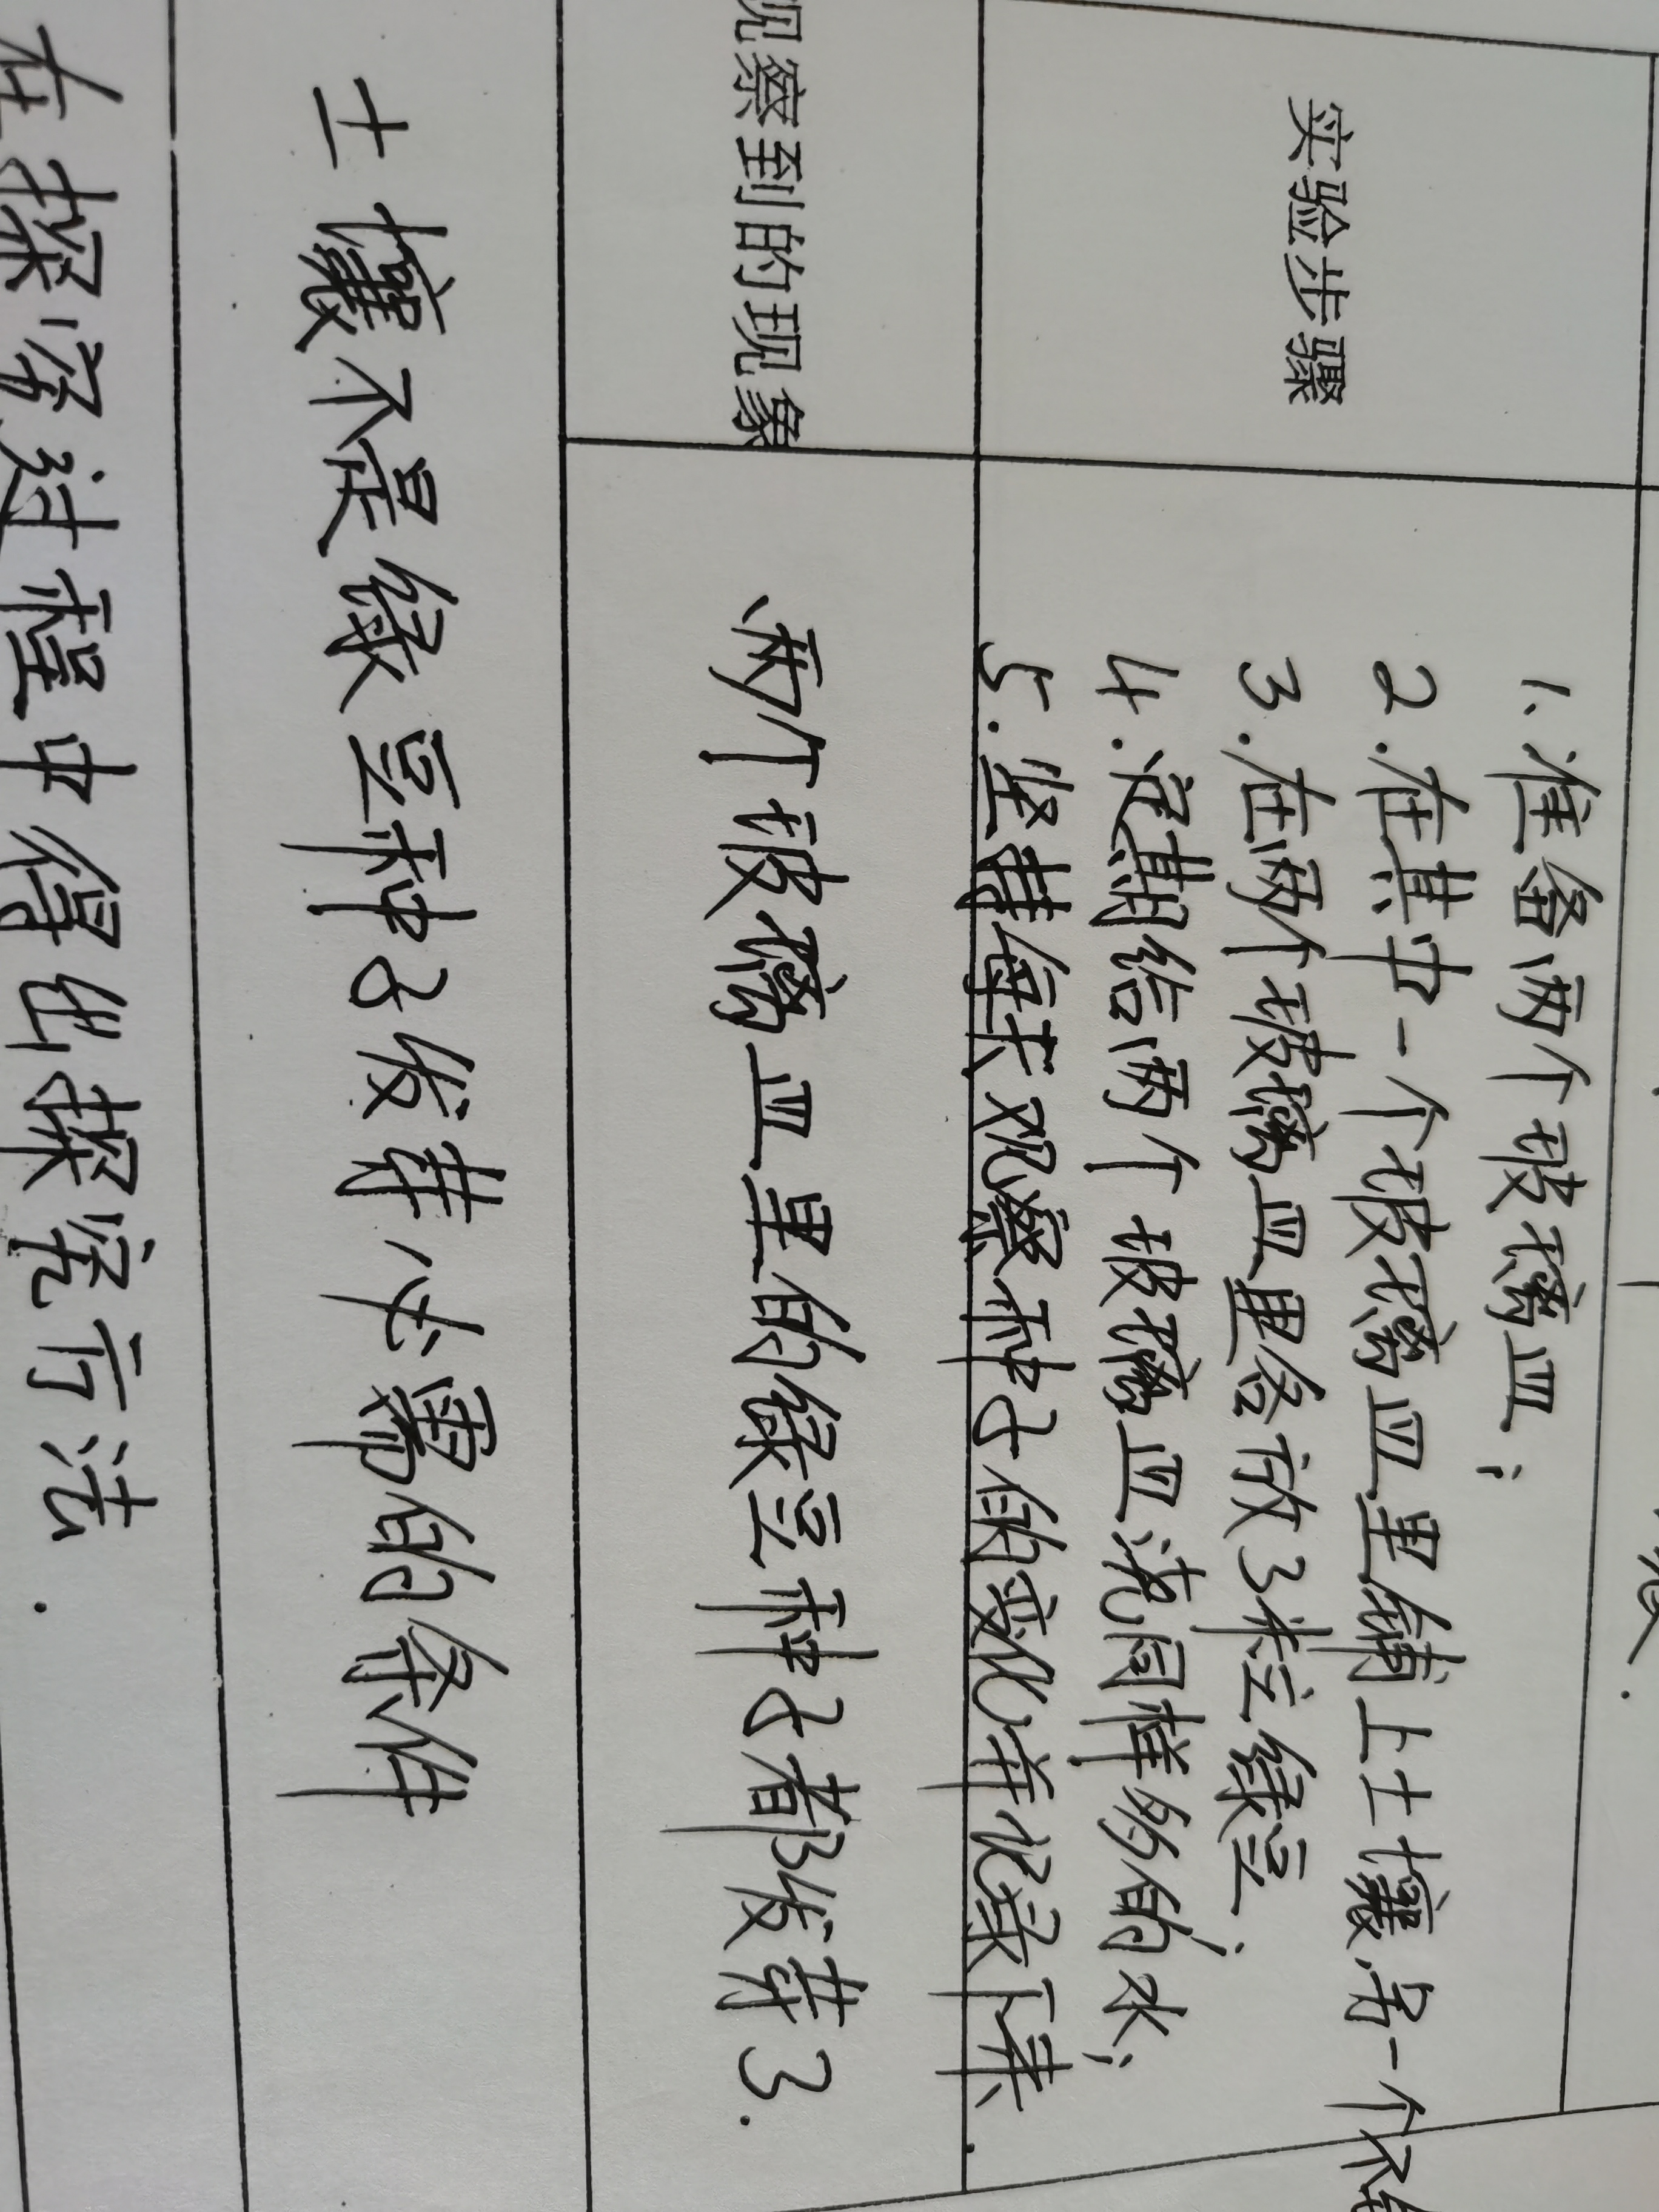 实验步骤
1.准备两个玻璃皿;
2.在其中一个玻璃皿里铺上土壤,另一个不
3.在两个玻璃皿里各放3粒绿豆;
4.定期给两个玻璃皿浇同样多的水;
5.坚持每天观察种子的变化并记录下来.
观察到的现象
两个玻璃皿里的绿豆种子都发芽了.
土壤不是绿豆种子发芽必需的条件
在探究过程中得出探究方法.